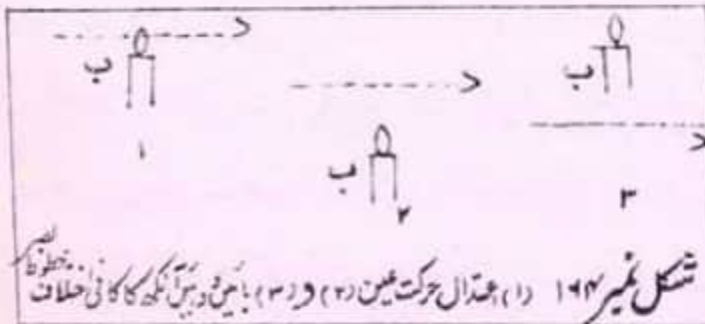 ب
۱
ب
۲
ب
۳
شکل نمبر ۱۶۴ (۱) اعتدال حرکت عین (۲) و (۳) بائیں و دہیں آنکھ کا کافی اختلاف خطوط بصر